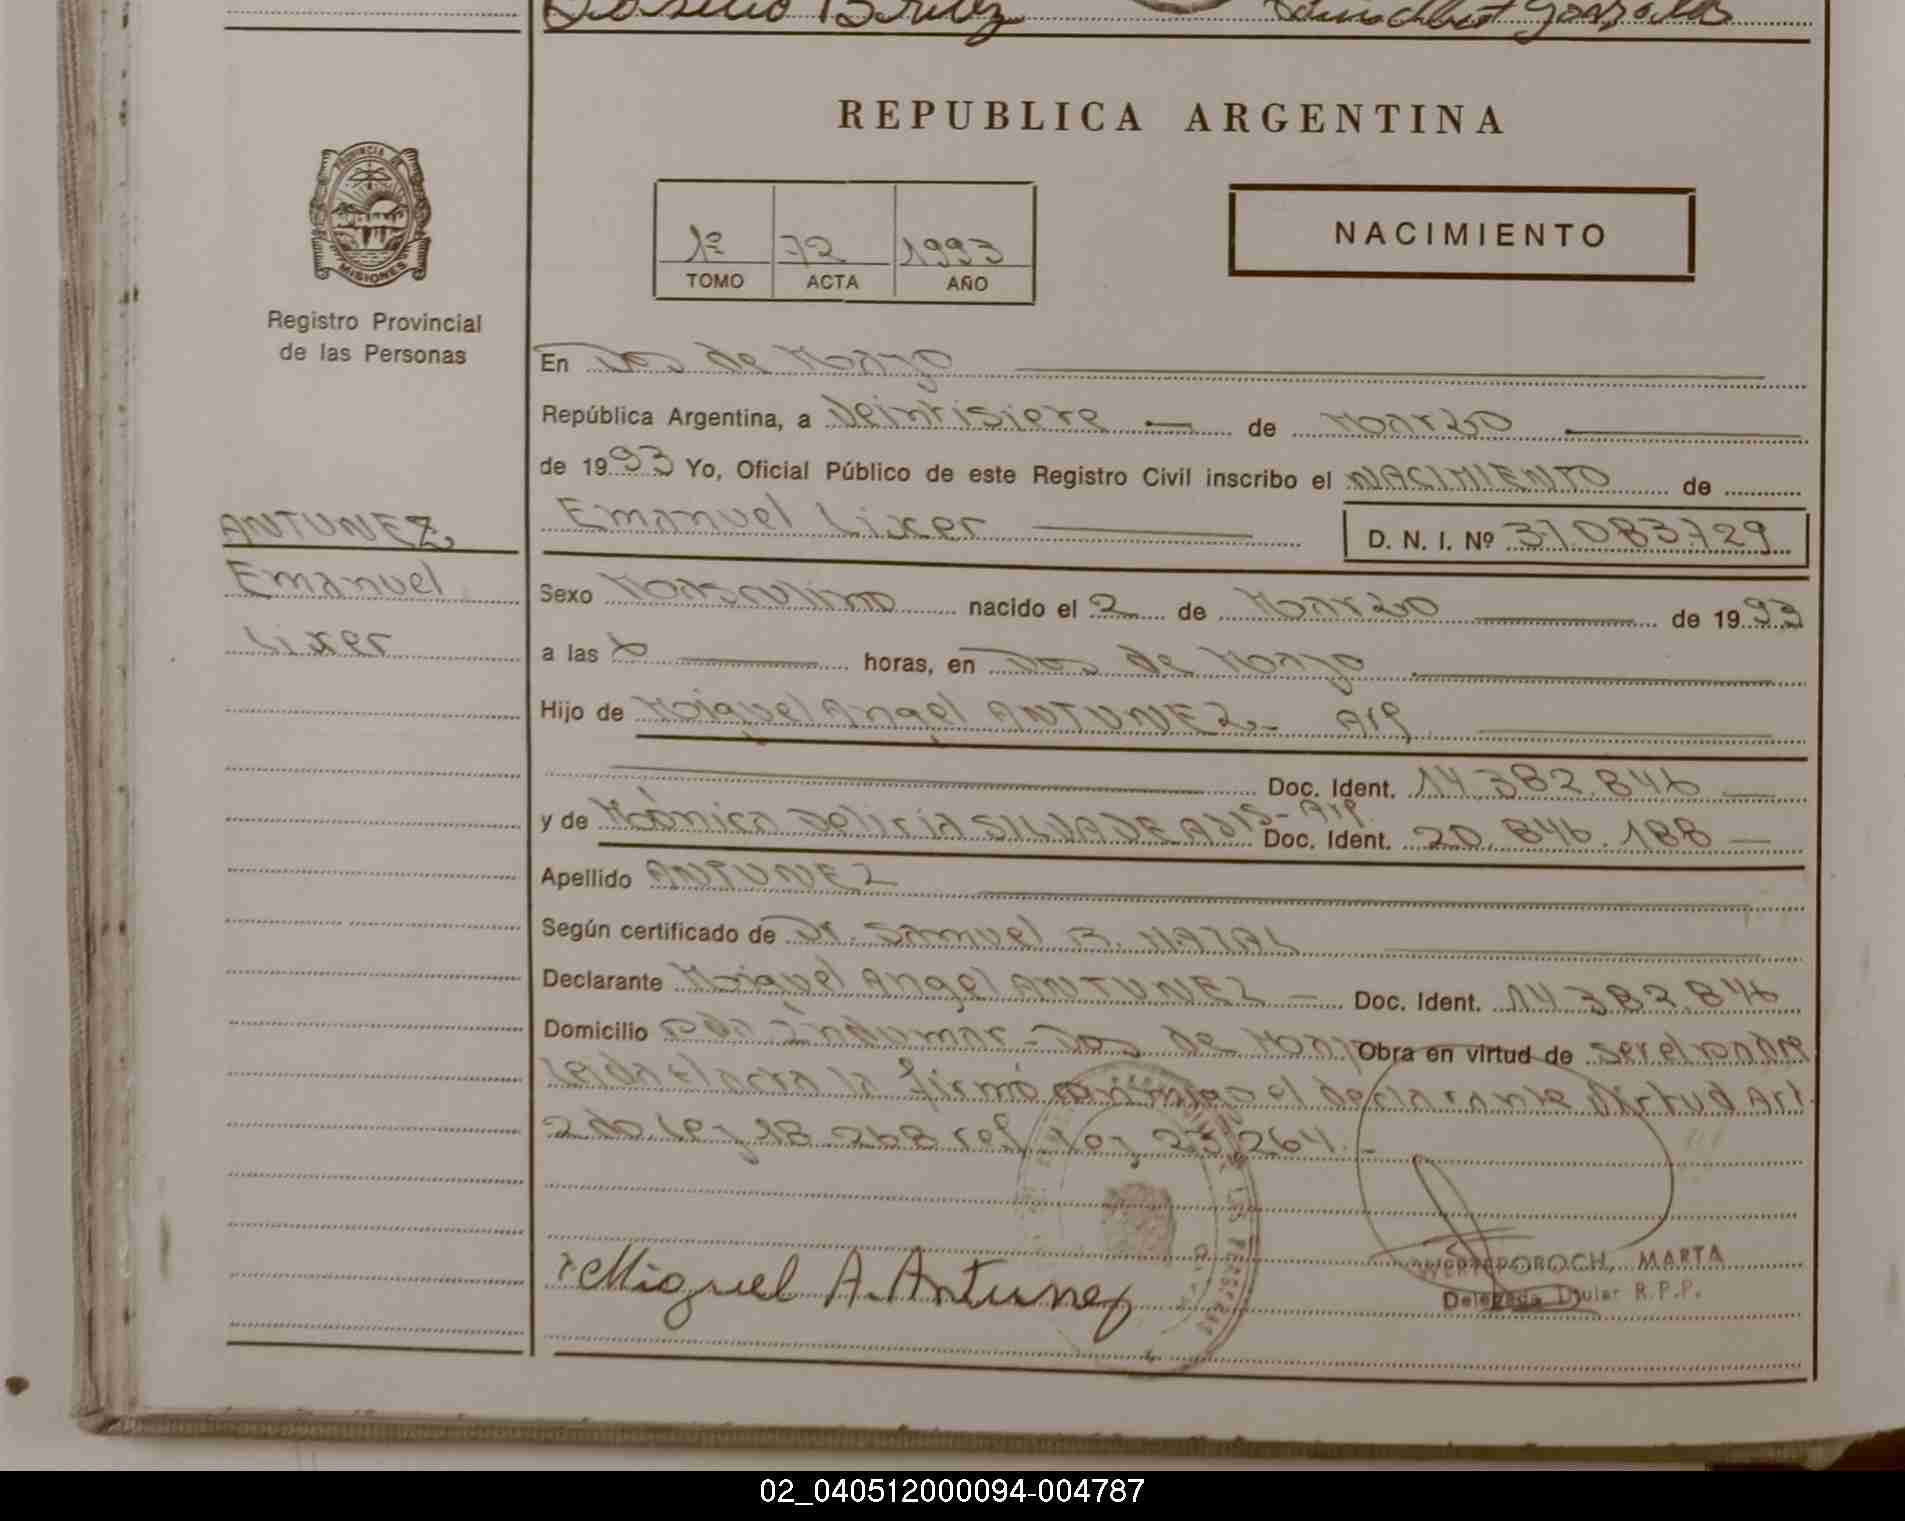 REPUBLICA ARGENTINA
PROVINCIA DE
MISIONES
Registro Provincial
de las Personas
1º 72 1993
TOMO ACTA AÑO
NACIMIENTO
En Dos de Mayo
República Argentina, a Veintisiete de Marzo
de 1993 Yo, Oficial Público de este Registro Civil inscribo el NACIMIENTO de
Emanuel Lixer D. N. I. Nº 37.083.729
ANTUNEZ,
Emanuel
Lixer
Sexo Masculino nacido el 2 de Marzo de 1993
a las horas, en Dos de Mayo
Hijo de Miguel Angel ANTUNEZ.- Arg
Doc. Ident. 14.382.846
y de Mónica SILVA DE - Arg. Doc. Ident. 20.846.188
Apellido ANTUNEZ
Según certificado de Dr. Samuel
Declarante Miguel Angel ANTUNEZ Doc. Ident. 14.382.846
Domicilio - Dos de Mayo Obra en virtud de ser el padre
leida el acta la firmó conmigo el declarante Virtud Art.
2do. Ley 18.268 ref. Ley 23.264.-
Miguel A. Antunez
MARTA
Delegada Titular R.P.P.
02_040512000094-004787